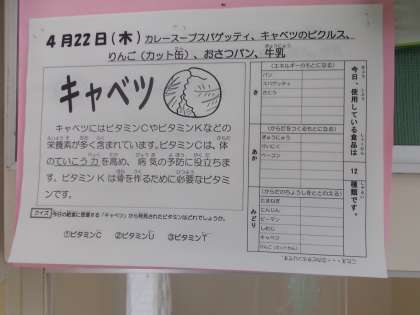 4月22日(木) カレースープスパゲッティ、キャベツのピクルス、
りんご(カット缶)、おさつパン、牛乳
キャベツ
キャベツにはビタミンCやビタミンKなどの
栄養素が多く含まれています。ビタミンCは、体
のていこう力を高め、病気の予防に役立ちま
す。ビタミンKは骨を作るために必要なビタミ
ンです。
クイズ 今日の給食に登場する「キャベツ」から発見されたビタミンはどれでしょうか。
①ビタミンC ②ビタミンU ③ビタミンT
今日、使用している食品は 12 種類です。
き
(エネルギーのもとになる)
パン
スパゲティ
さとう
あか
(からだをつくるもとになる)
ぎゅうにゅう
ベーコン
みどり
(からだのちょうしをととのえる)
たまねぎ
にんじん
ピーマン
しめじ
キャベツ
りんご(カットかん)